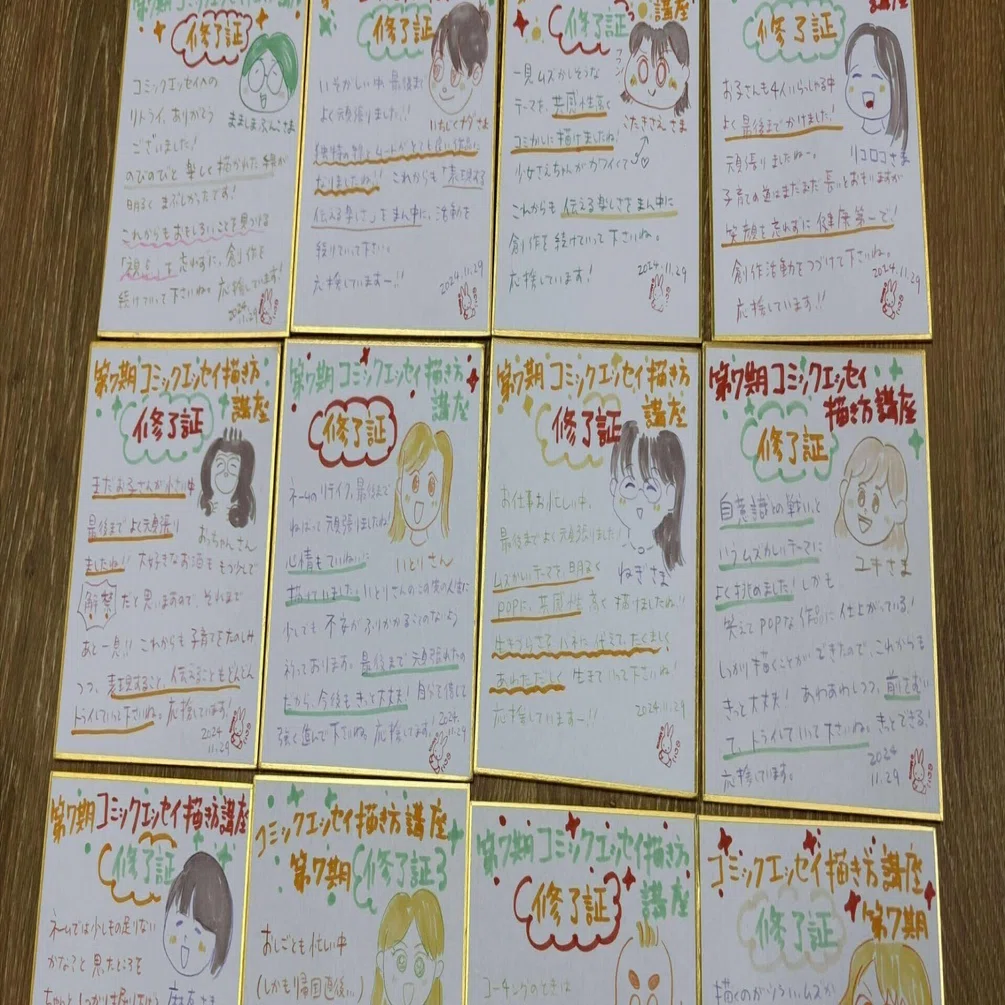 第7期コミックエッセイ描き方講座
修了証
コミックエッセイへの
リトライ、ありがとう
ございました!
ままじまぶんこさま
のびのびと楽しく描かれた絵が
明るくまぶしかったです!
これからもおもしろいことを見つける
「視点」を忘れずに、創作を
続けていって下さいね。応援しています!
2024
11.29
修了証
いそがしい中、最後まで
よく頑張りました!!
いちじくナダさま
なりましたね!! これからも「表現する
伝える楽しさ」をまん中に、活動を
続けていって下さい。
応援していますー!!
2024.11.29
講座
修了証
一見ムズかしそうな
テーマを、共感性高く
コミカルに描けましたね!
こたきさえさま
少女さえちゃんがカワイくて
これからも伝える楽しさをまん中に
創作を続けていって下さいね。
応援しています!
2024.11.29
講座
修了証
お子さんも4人いらっしゃる中
よく最後までかけました!
頑張りましたねー。
リコロコさま
子育ての道はまだまだ長いとおもいますが
笑顔を忘れずに健康第一で!
創作活動をつづけて下さいね。
応援しています!!
2024.11.29
第7期コミックエッセイ描き方
講座
修了証
まだお子さんが小さい中
最後までよく頑張り
ましたね!! 大好きなお酒ももうんで
おっちゃんさん
解禁だと思いますので、それまで
あと一息!! これからも子育てをたのしみ
つつ、表現すること、伝えることもどんどん
トライしていって下さいね。応援しています!
2024
11.29
第7期コミックエッセイ描き方
講座
修了証
ネームのリテイク、最後まで
ねばって頑張りましたね!
心情もていねいに
いとりさん
描けていました。いとりさんのこの先の人生に
少しでも不幸がふりかかることのないよう
祈っております。最後まで頑張れたの
だから、今後もきっと大丈夫! 自分を信じて
強く進んで下さいね。応援しています!
2024.
11.29
第7期コミックエッセイ描き方
講座
修了証
お仕事お忙しい中、
最後までよく頑張りました!
ムズかしいテーマで、明るく
ねぎさま
POPに、共感性高く描けましたね!!
生きづらさをバネに代えて、たくましく
あわただしく生きていって下さいね!
応援していますー!!
2024.11.29
第7期コミックエッセイ
描き方講座
修了証
自意識との戦いと
いうムズかしいテーマに
ユキさま
よく挑めました! しかも
笑えてPOPな作品に仕上がっている!
しっかり描くことができたので、これからも
きっと大丈夫! あわあわしつつ、前をむい
て、トライしていって下さいね。きっとできる!
応援しています。
2024
11.29
第7期コミックエッセイ描き方講座
修了証
ネームでは少しもの足りない
かな?と思ったところを
コミックエッセイ描き方講座
第7期
修了証
おしごとも忙しい中
(しかも帰国直後…)
第7期コミックエッセイ描き方
講座
修了証
コーチングのときは
コミックエッセイ描き方講座
第7期
修了証